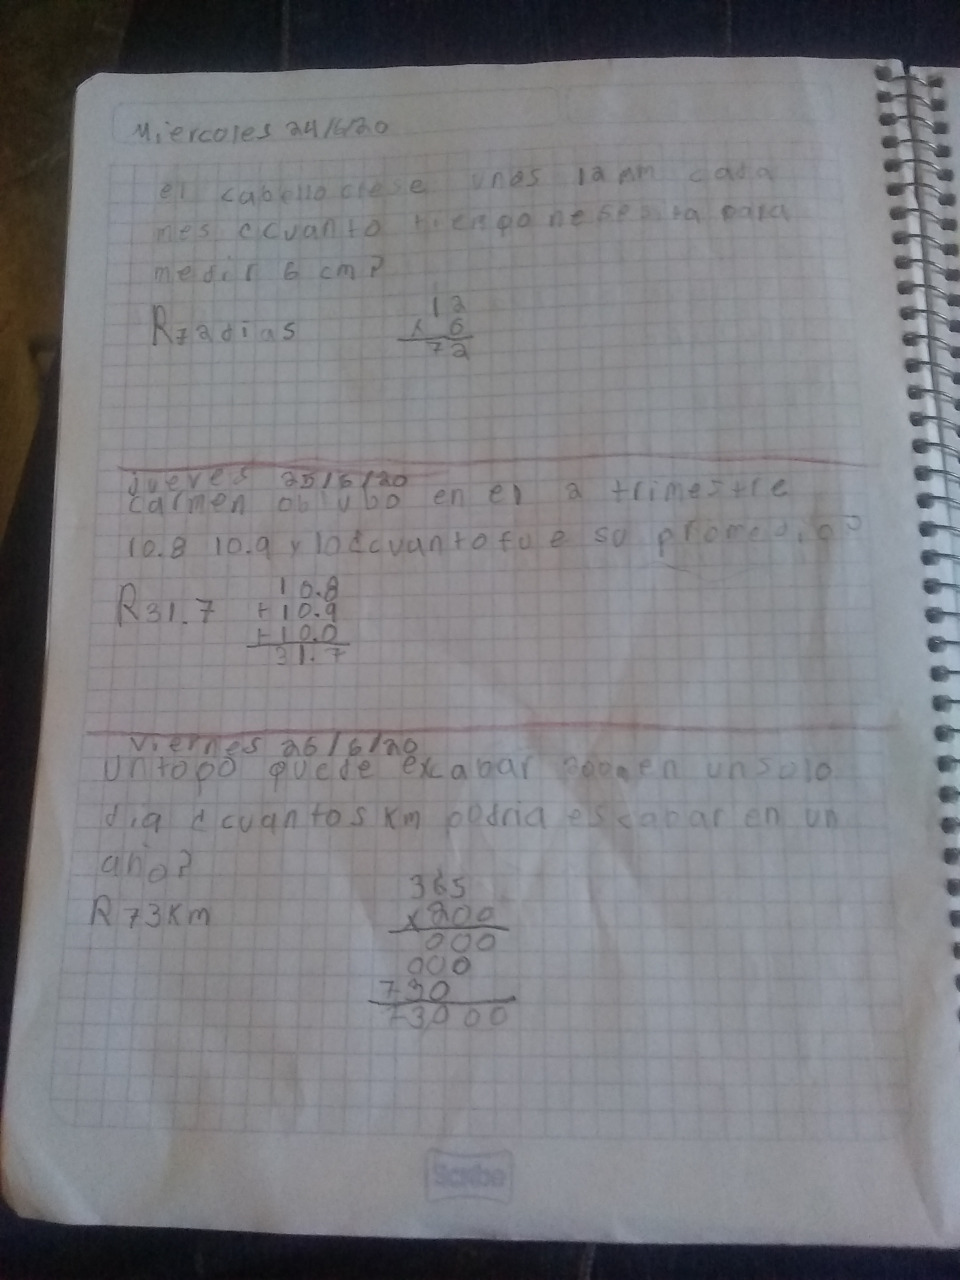 Miercoles 24/6/20
el cabello crese unos 12 mm cada
mes ¿cuanto tiempo nesesita para
medir 6 cm?
R72 dias
12
x 6
72
jueves 25/6/20
carmen obtubo en el 2 trimestre
10.8 10.9 y 10 ¿cuanto fue su promedio?
R31.7
10.8
+10.9
+10.0
31.7
viernes 26/6/20
un topo puede excabar 200m en un solo
dia ¿cuantos km podria escabar en un
año?
R 73 Km
365
x200
000
000
730
73000
Scribe